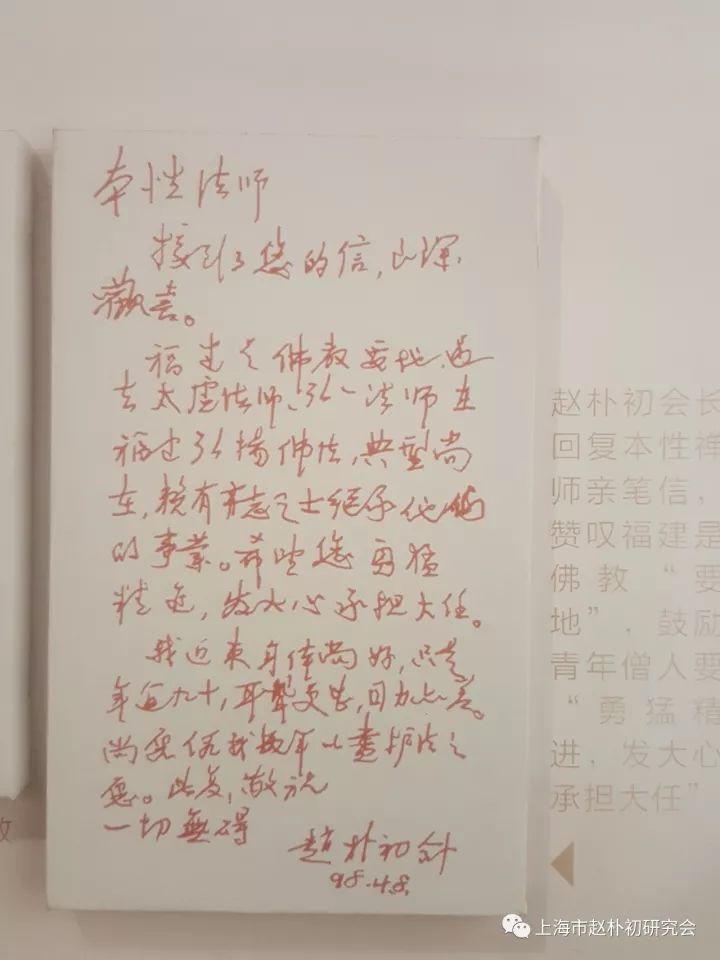 本性法师
接到了您的信，至深
歡喜。
福建是佛教要地，过
去太虚法师、弘一法师在
福建弘揚佛法，典型尚
在，赖有有志之士继承他们
的事業。希望您勇猛
精進，发大心承担大任。
我近来身体尚好，只是
年近九十，耳聋更甚，目力亦差。
尚要假我数年以尽护法之
愿。此复，敬祝
一切無碍
趙朴初
98.4.8.
赵朴初会长
回复本性禅
师亲笔信，
赞叹福建是
佛教“要
地”，鼓励
青年僧人要
“勇猛精
进，发大心
承担大任”
上海市赵朴初研究会